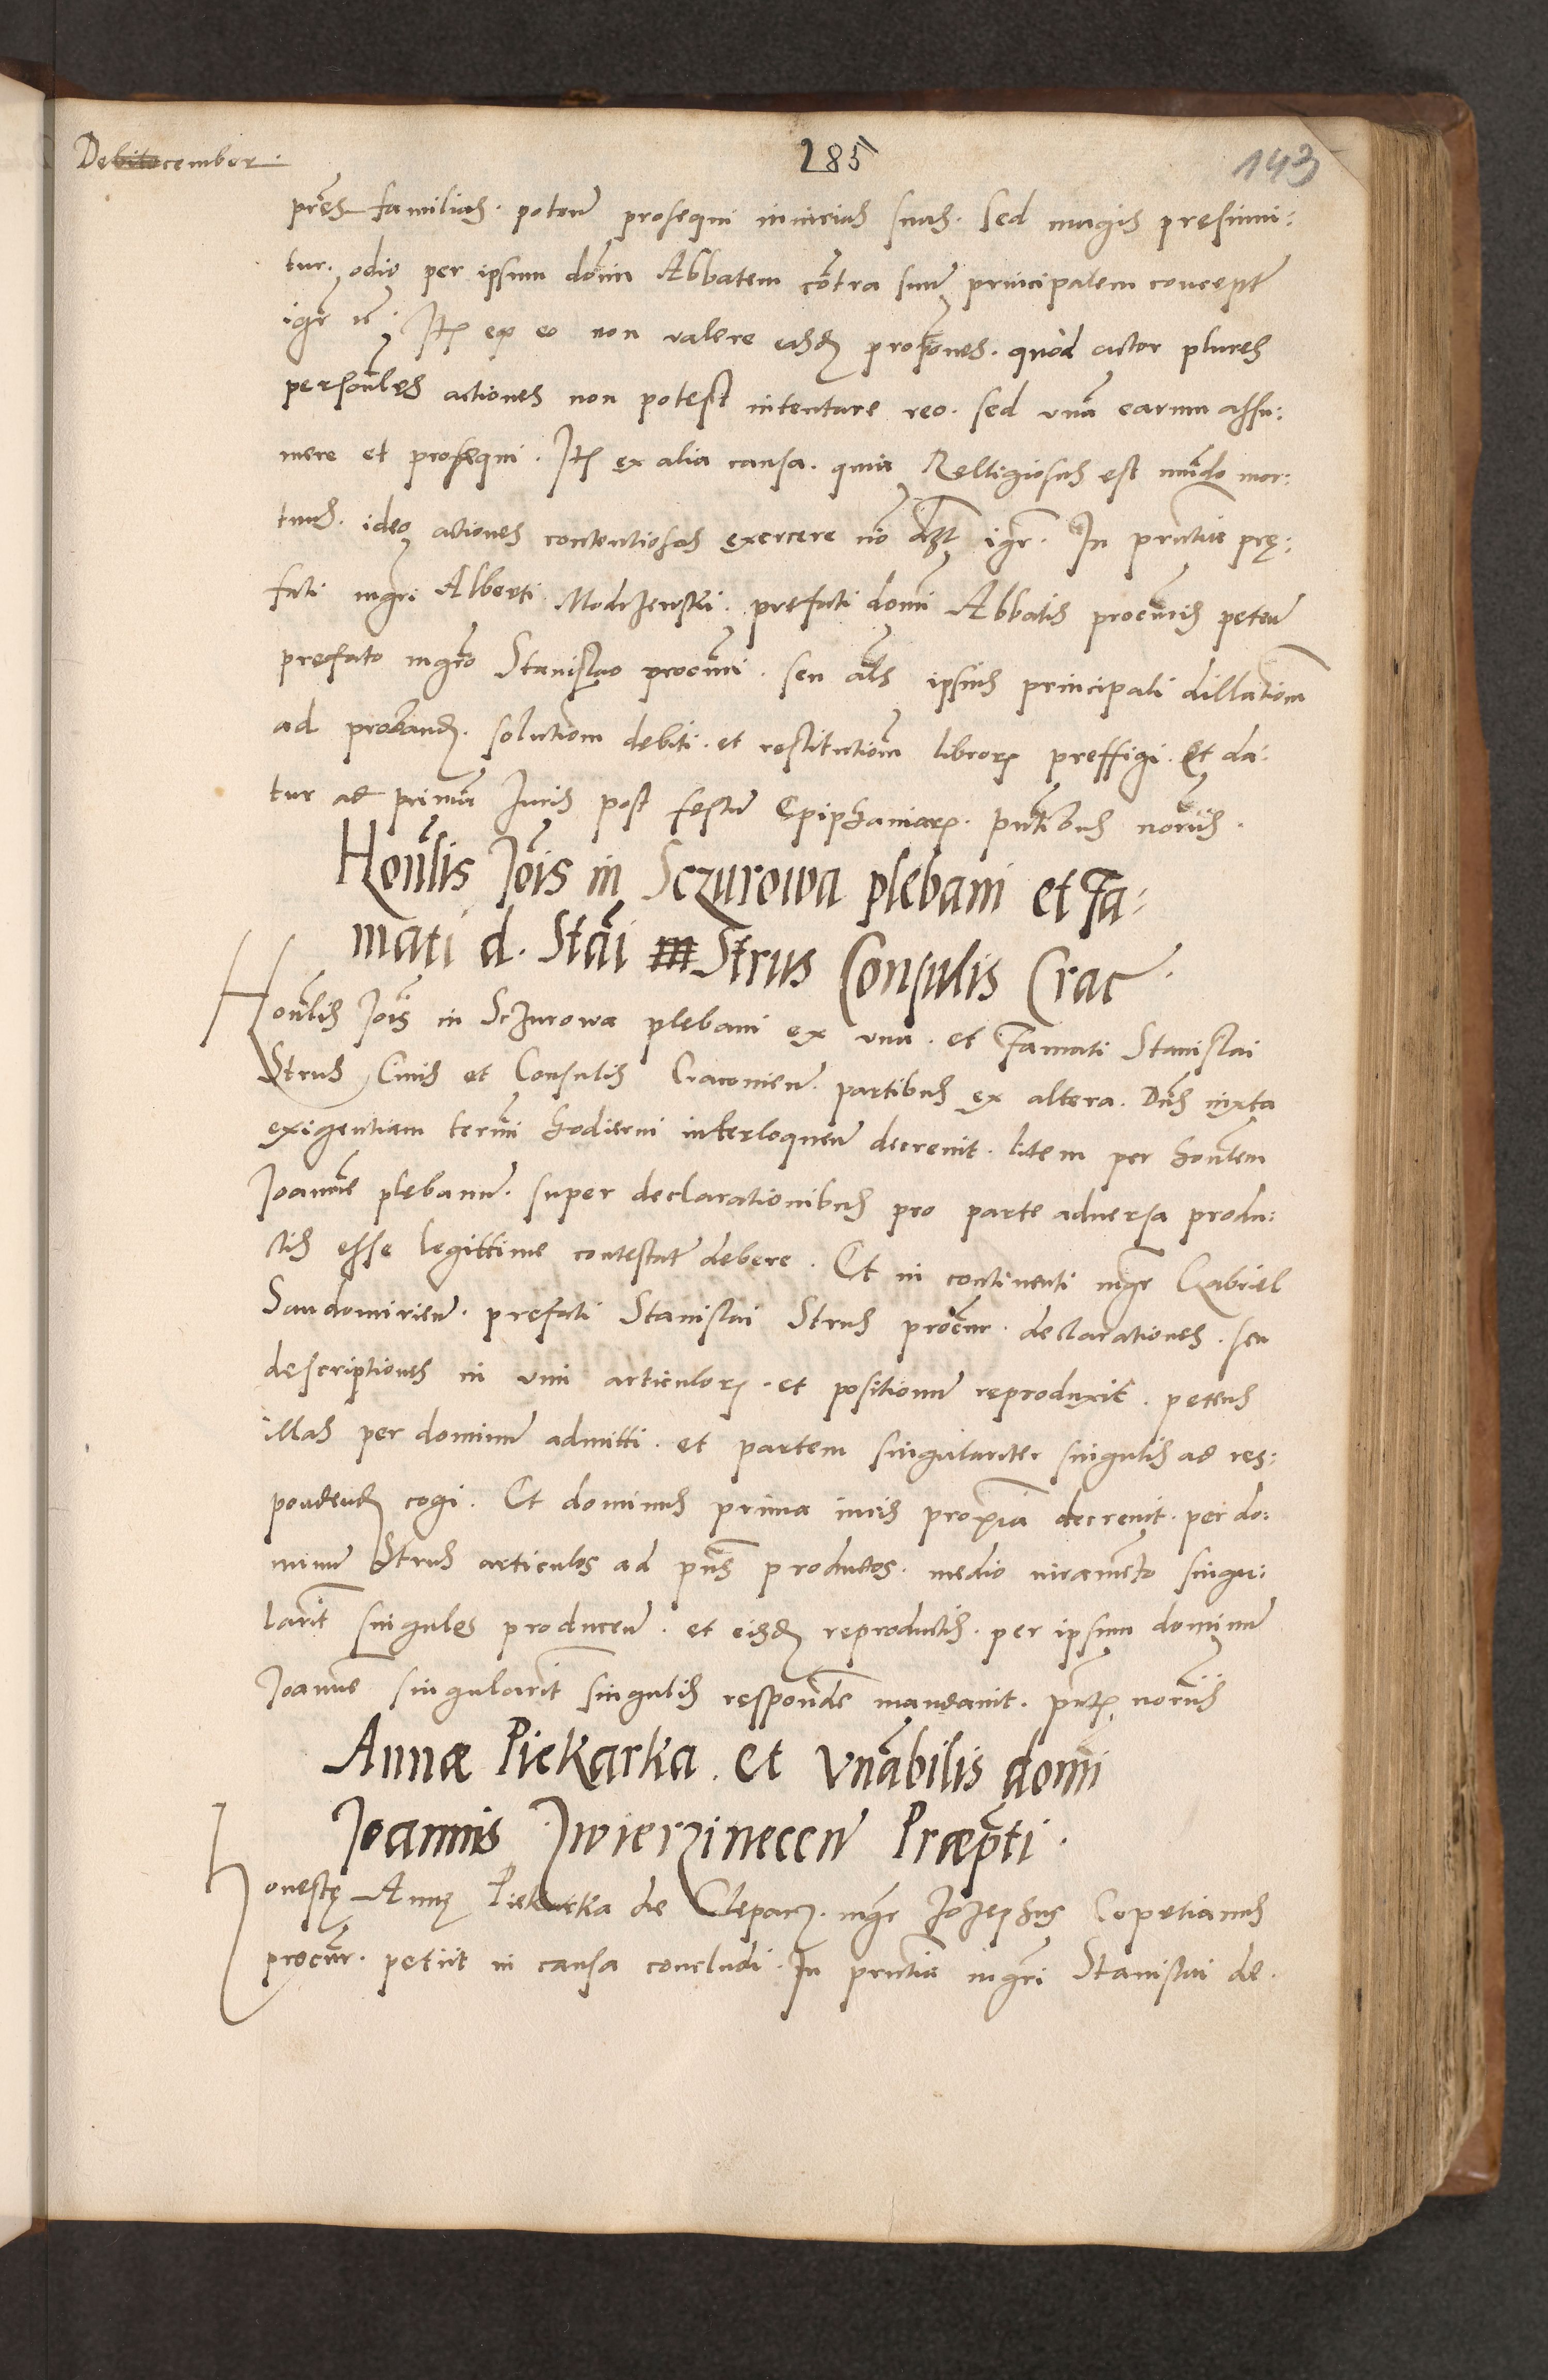 Debitocember.
285
143
pres familias. poteñ prosequi iniurias suas. Sed magis presumi:
tur. odio per ipsum domin Abbatem contra suum principalem concepto
igr rc. Itz ex eo non valere easdem probones. quod actor plures
personales actiones non potest intentare reo. sed vnã earum assu:
mere et prosequi. Itz ex alia causa. quia Religiosus est mundo mor:
tuus. ideo actiones contentiosas exercere nõ igr. In pruntia prę:
fati mgri Alberti Modrzenski. prefati domi Abbatis procuris peteñ
prefato mgro Stanislao procuri. seu als ipsius principali dillationem
ad probandz. solutionem debiti. et restitutionem librorz preffigi. Et da:
tur ad primã Iuris post festum Epiphaniarz. pntibus noriis.
Honlis Jois in Sczurowa plebani et Fa:
mati d. Stãi Strus Consulis Crac.
Honlis Jois in Sczurowa plebani ex vna. et Famati Stanislai
Strus Ciuis et Consulis Cracouieñ. partibus ex altera. Dns iuxta
exigentiam termi hodierni interloqueñ decreuit. litem per honlem
Joannẽ plebanum. super declarationibus pro parte aduersa produ:
ctis esse legittime contestat debere. Et in continenti mgr Gabriel
Sandomirieñ. prefati Stanislai Strus procur. declarationes. seu
descriptiones in vim articulorz. et positionum reproduxit. petens
illas per dominum admitti. et partem singulariter singulis ad res:
pondendz cogi. Et dominus prima iuris proxia decreuit. per do:
minum Strus articulos ad pñs productos. medio iuramẽto singu:
larit singulos produceñ. et eisdz reproductis. per ipsum dominum
Joannẽ singularit singulis respondẽ mandauit. pntz noriis
Annæ Piekarka. et Vnabilis domi
Joannis Zwierzineceñ Præpti.
Honestę Annę Piekarka de Clepars. mgr Jozephus Copetianus
procur. petiit in causa concludi. In pruntia mgri Stanislai de.